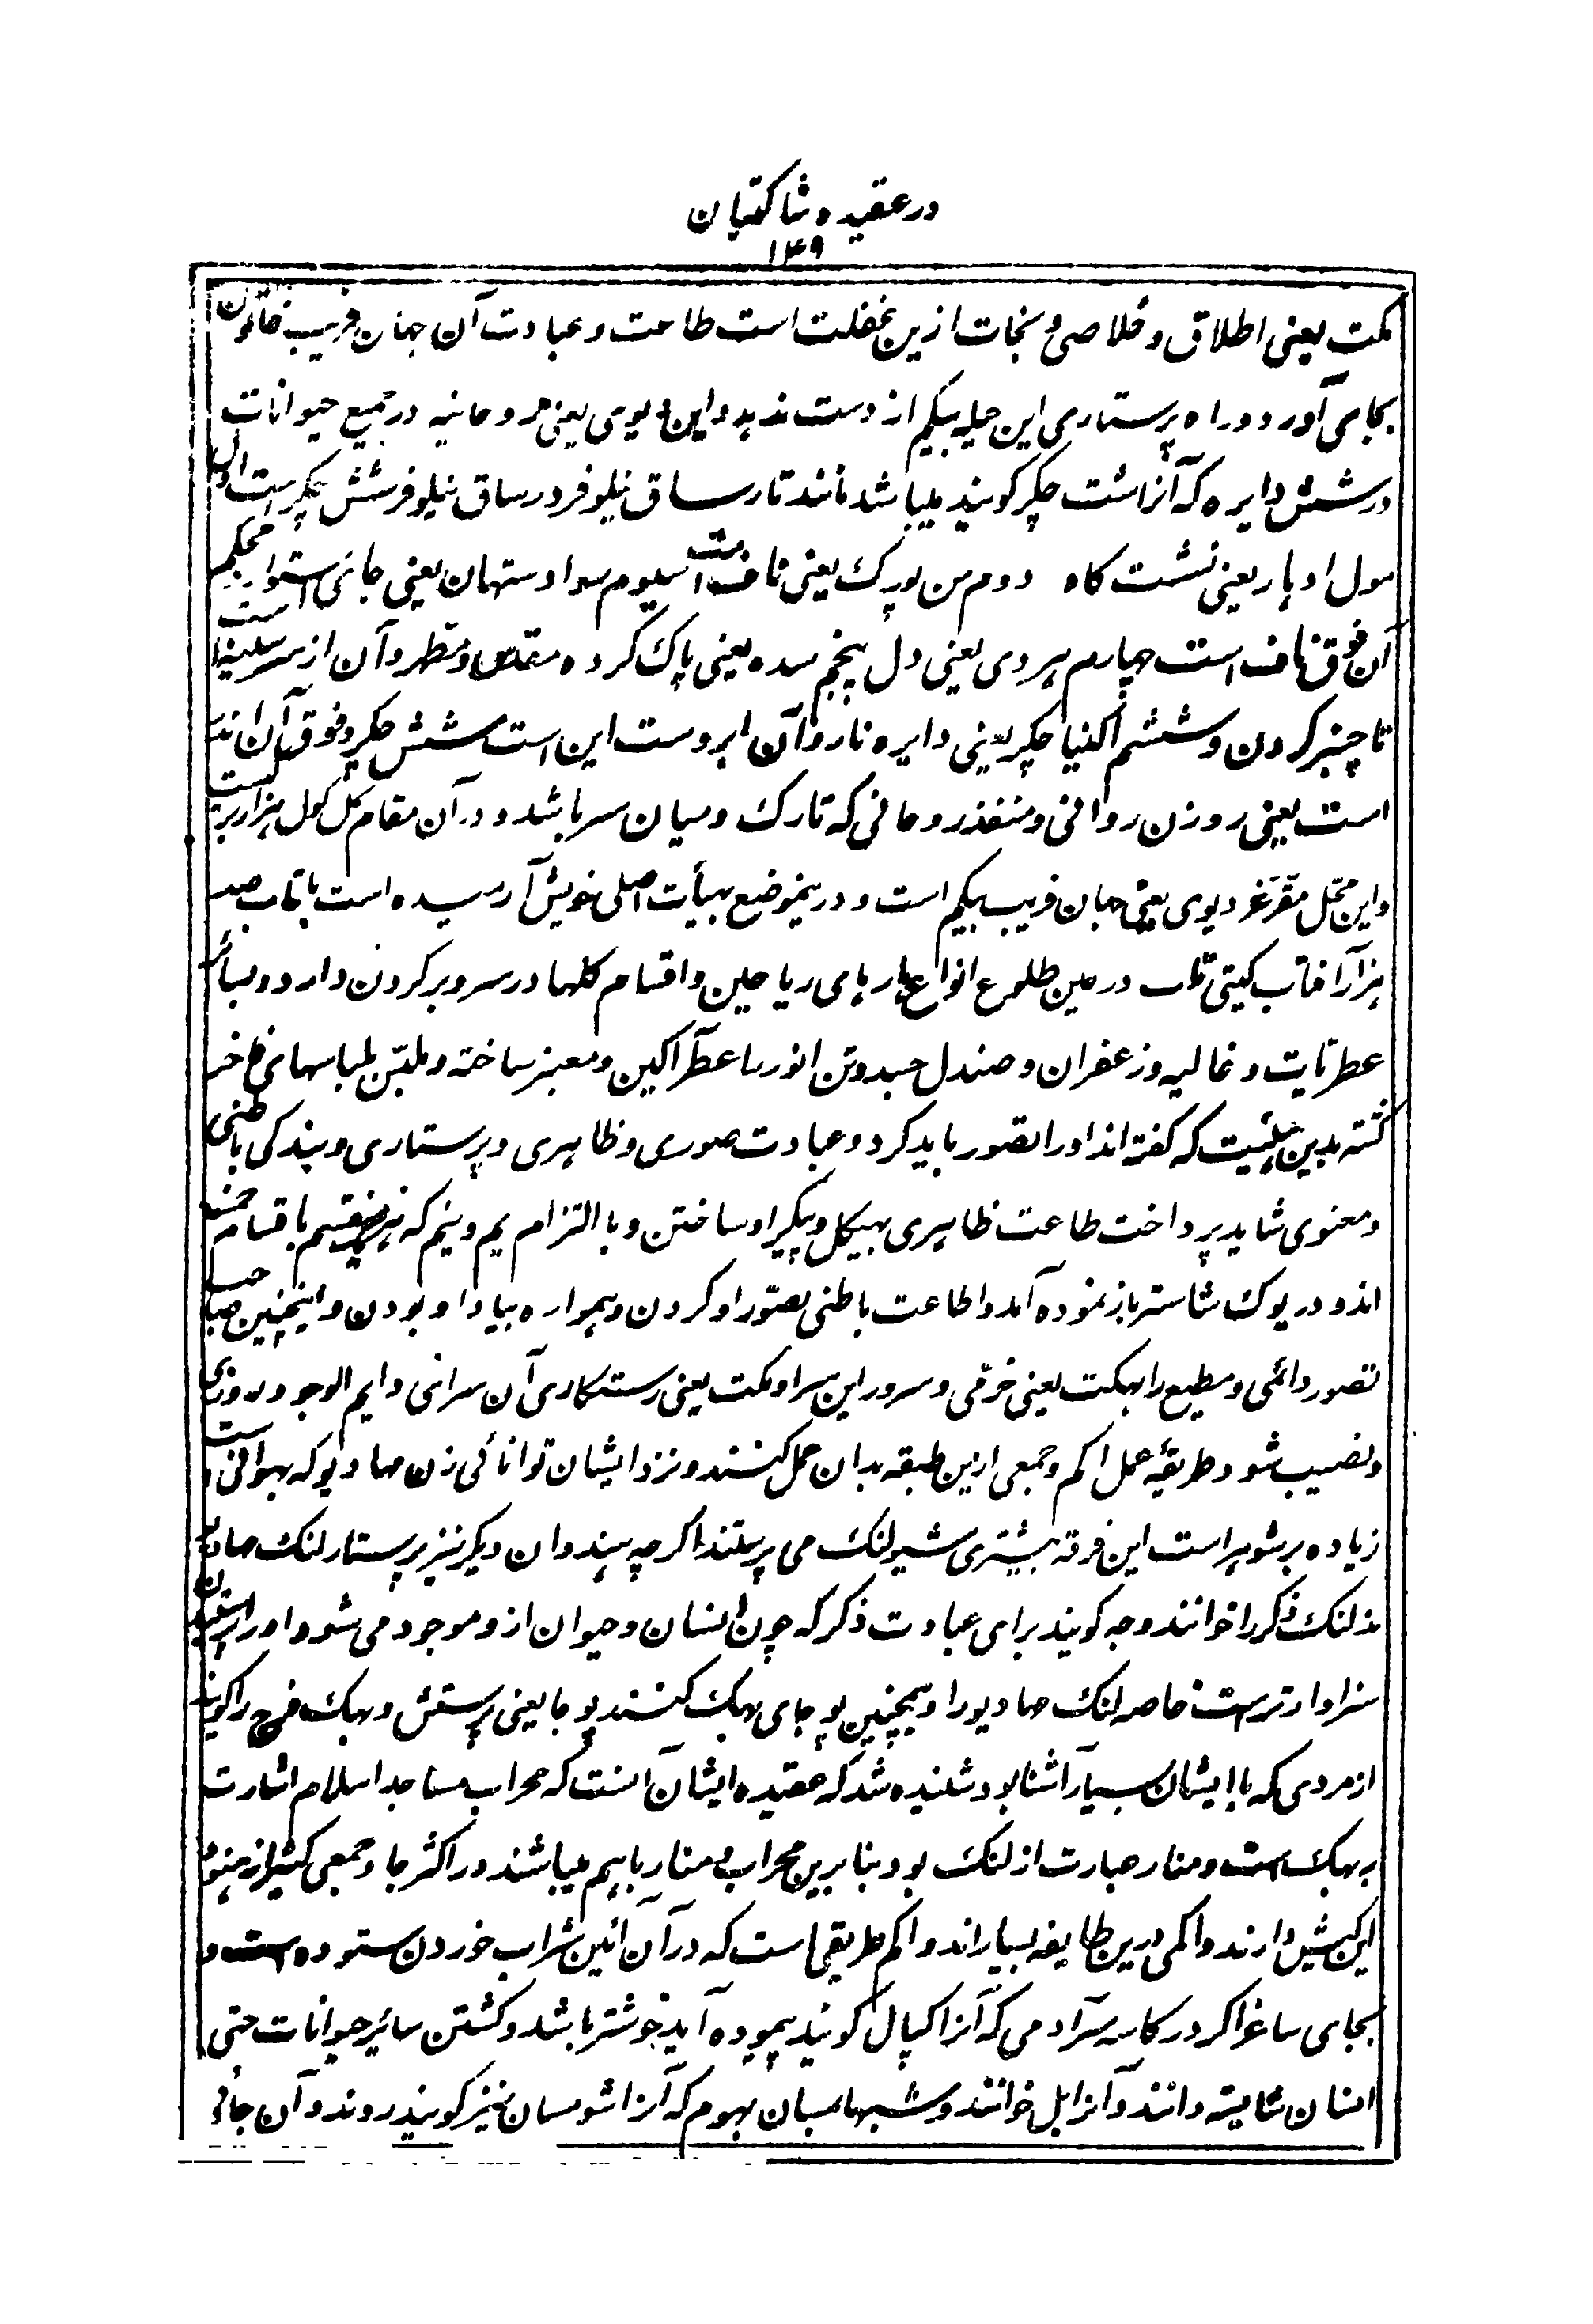 در عقیده شاکتیان
۱۴۹
مکت یعنی اطلاق و خلاصی و نجات ازین غفلت است طاعت و عبادت آن جهان فریب خاتون
بجای آورد و راه پرستاری این جمیله بیگم از دست ندهد و این دیوی یعنی روحانیه در جمیع حیوانات
در شش دایره که آنرا شت چکر گویند میباشد مانند تار ساق نیلوفر در ساق نیلوفر شش چکر است اول
مول ادهار یعنی نشست گاه دوم من پورک یعنی ناف است سیوم سواد ستهان یعنی جای استوار محکم
آن فوق ناف است چهارم هردی یعنی دل پنجم سده یعنی پاک کرده مقدس و مطهر و آن از سر سینه است
تا چنبر گردن و ششم اگنیا چکر یعنی دایره نار و آن ابروست این است شش چکر و فوق آن اندر
است یعنی روزن روانی و منفذ روحانی که تارک و میان سر باشد و در آن مقام گل کول هزار برگیست
و این محل مقر غر دیوی یعنی جهان فریب بیگم است و درینموضع بهیأت اصلی خویش آرمیده است با تاب صد
هزار آفتاب گیتی تاب در حین طلوع انواع هارهای ریاحین و اقسام گلها در سر و بر گردن دارد و بسائر
عطریات و غالیه و زعفران و صندل جسد و تن انور را عطر آگین و معنبر ساخته و ملبس بلباسهای فاخر
گشته بدین هیئت که گفته اند او را تصور باید کرد و عبادت صوری و ظاهری و پرستاری و بندگی باطنی
و معنوی شاید پرداخت طاعت ظاهری بهیکل و پیکر او ساختن و با التزام یم و نیم که نیز منقسم باقسام خمسه
اند و در یوک شاستر باز نموده آمد و اطاعت باطنی تصور او کردن و همواره بیاد او بودن و اینچنین صاحب
تصور دائمی و مطیع را بهکت یعنی خرمی و سرور این سرا و مکت یعنی رستگاری آن سرای دایم الوجود روزی
و نصیب شود طریقه عمل اکم و جمعی ازین طبقه بدان عمل کنند و نزد ایشان توانائی زن مهادیو که بهوانی است
زیاده بر شوهر است این فرقه بیشتری شیولنک می پرستند اگر چه هندوان دیگر نیز پرستار لنک مهادیو
ند لنک ذکر را خوانند وجه گویند برای عبادت ذکر که چون انسان و حیوان ازو موجود می شود او را پرستیدن
سزاوارترست خاصه لنک مهادیو را و همچنین پوجای بهک کنند پوجا یعنی پرستش و بهک فرج را گویند
از مردی که با ایشان بسیار آشنا بود شنیده شد که عقیده ایشان آنست که محراب مساجد اسلام اشارت
به بهک است و منار عبارت از لنک بود بنا برین محراب و منار باهم میباشند در اکثر جا و جمعی کثیر از هنود
این کیش دارند و اکمی درین طایفه بسیار اند و اکم طریقی است که در آن آئین شراب خوردن ستوده است و
بجای ساغر اگر در کاسه سر آدمی که آنرا کپال گویند پیموده آید خوشتر باشد و کشتن سائر حیوانات حتی
انسان شایسته دانند و آنرا بل خوانند و شبهها بسان بهوم که آنرا شومسان نیز گویند روند و آن جائی